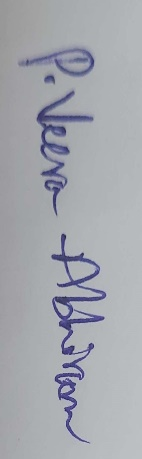 P. Veera Abhiram